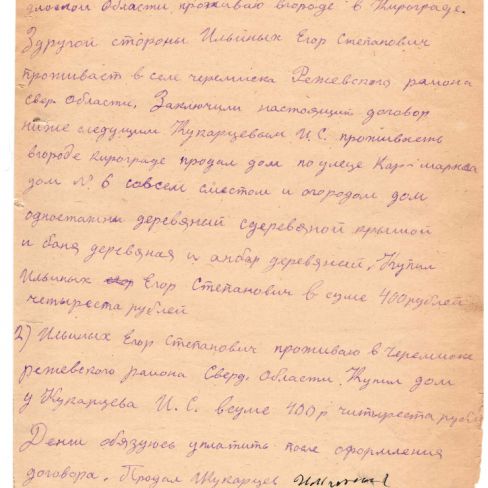 Области проживаю вгороде в Кирограде.
Здругой стороны Ильиных Егор Степанович
проживаст в селе черемиска Режевского района
свер. Области. Заключили настоящий договор
ниже следущим Кукарцевым И.С. проживаеть
вгороде кирограде продал дом по улеце Карл маркса
дом № 6 совсем сместом и огородом дом
одноэтажный деревяный сдеревяной крышой
и баня деревяная и анбар деревяный. Купил
Ильиных Егор Степанович в суме 400 рублей
четыреста рублей
2) Ильиных Егор Степанович проживаю в Черемиске
режевского района Сверд. Области. Купил дом
у Кукарцева И.С. всуме 400 р читыреста рублей
Денги обязуюсь уплатить после оформления
договора. Продал Кукарцев